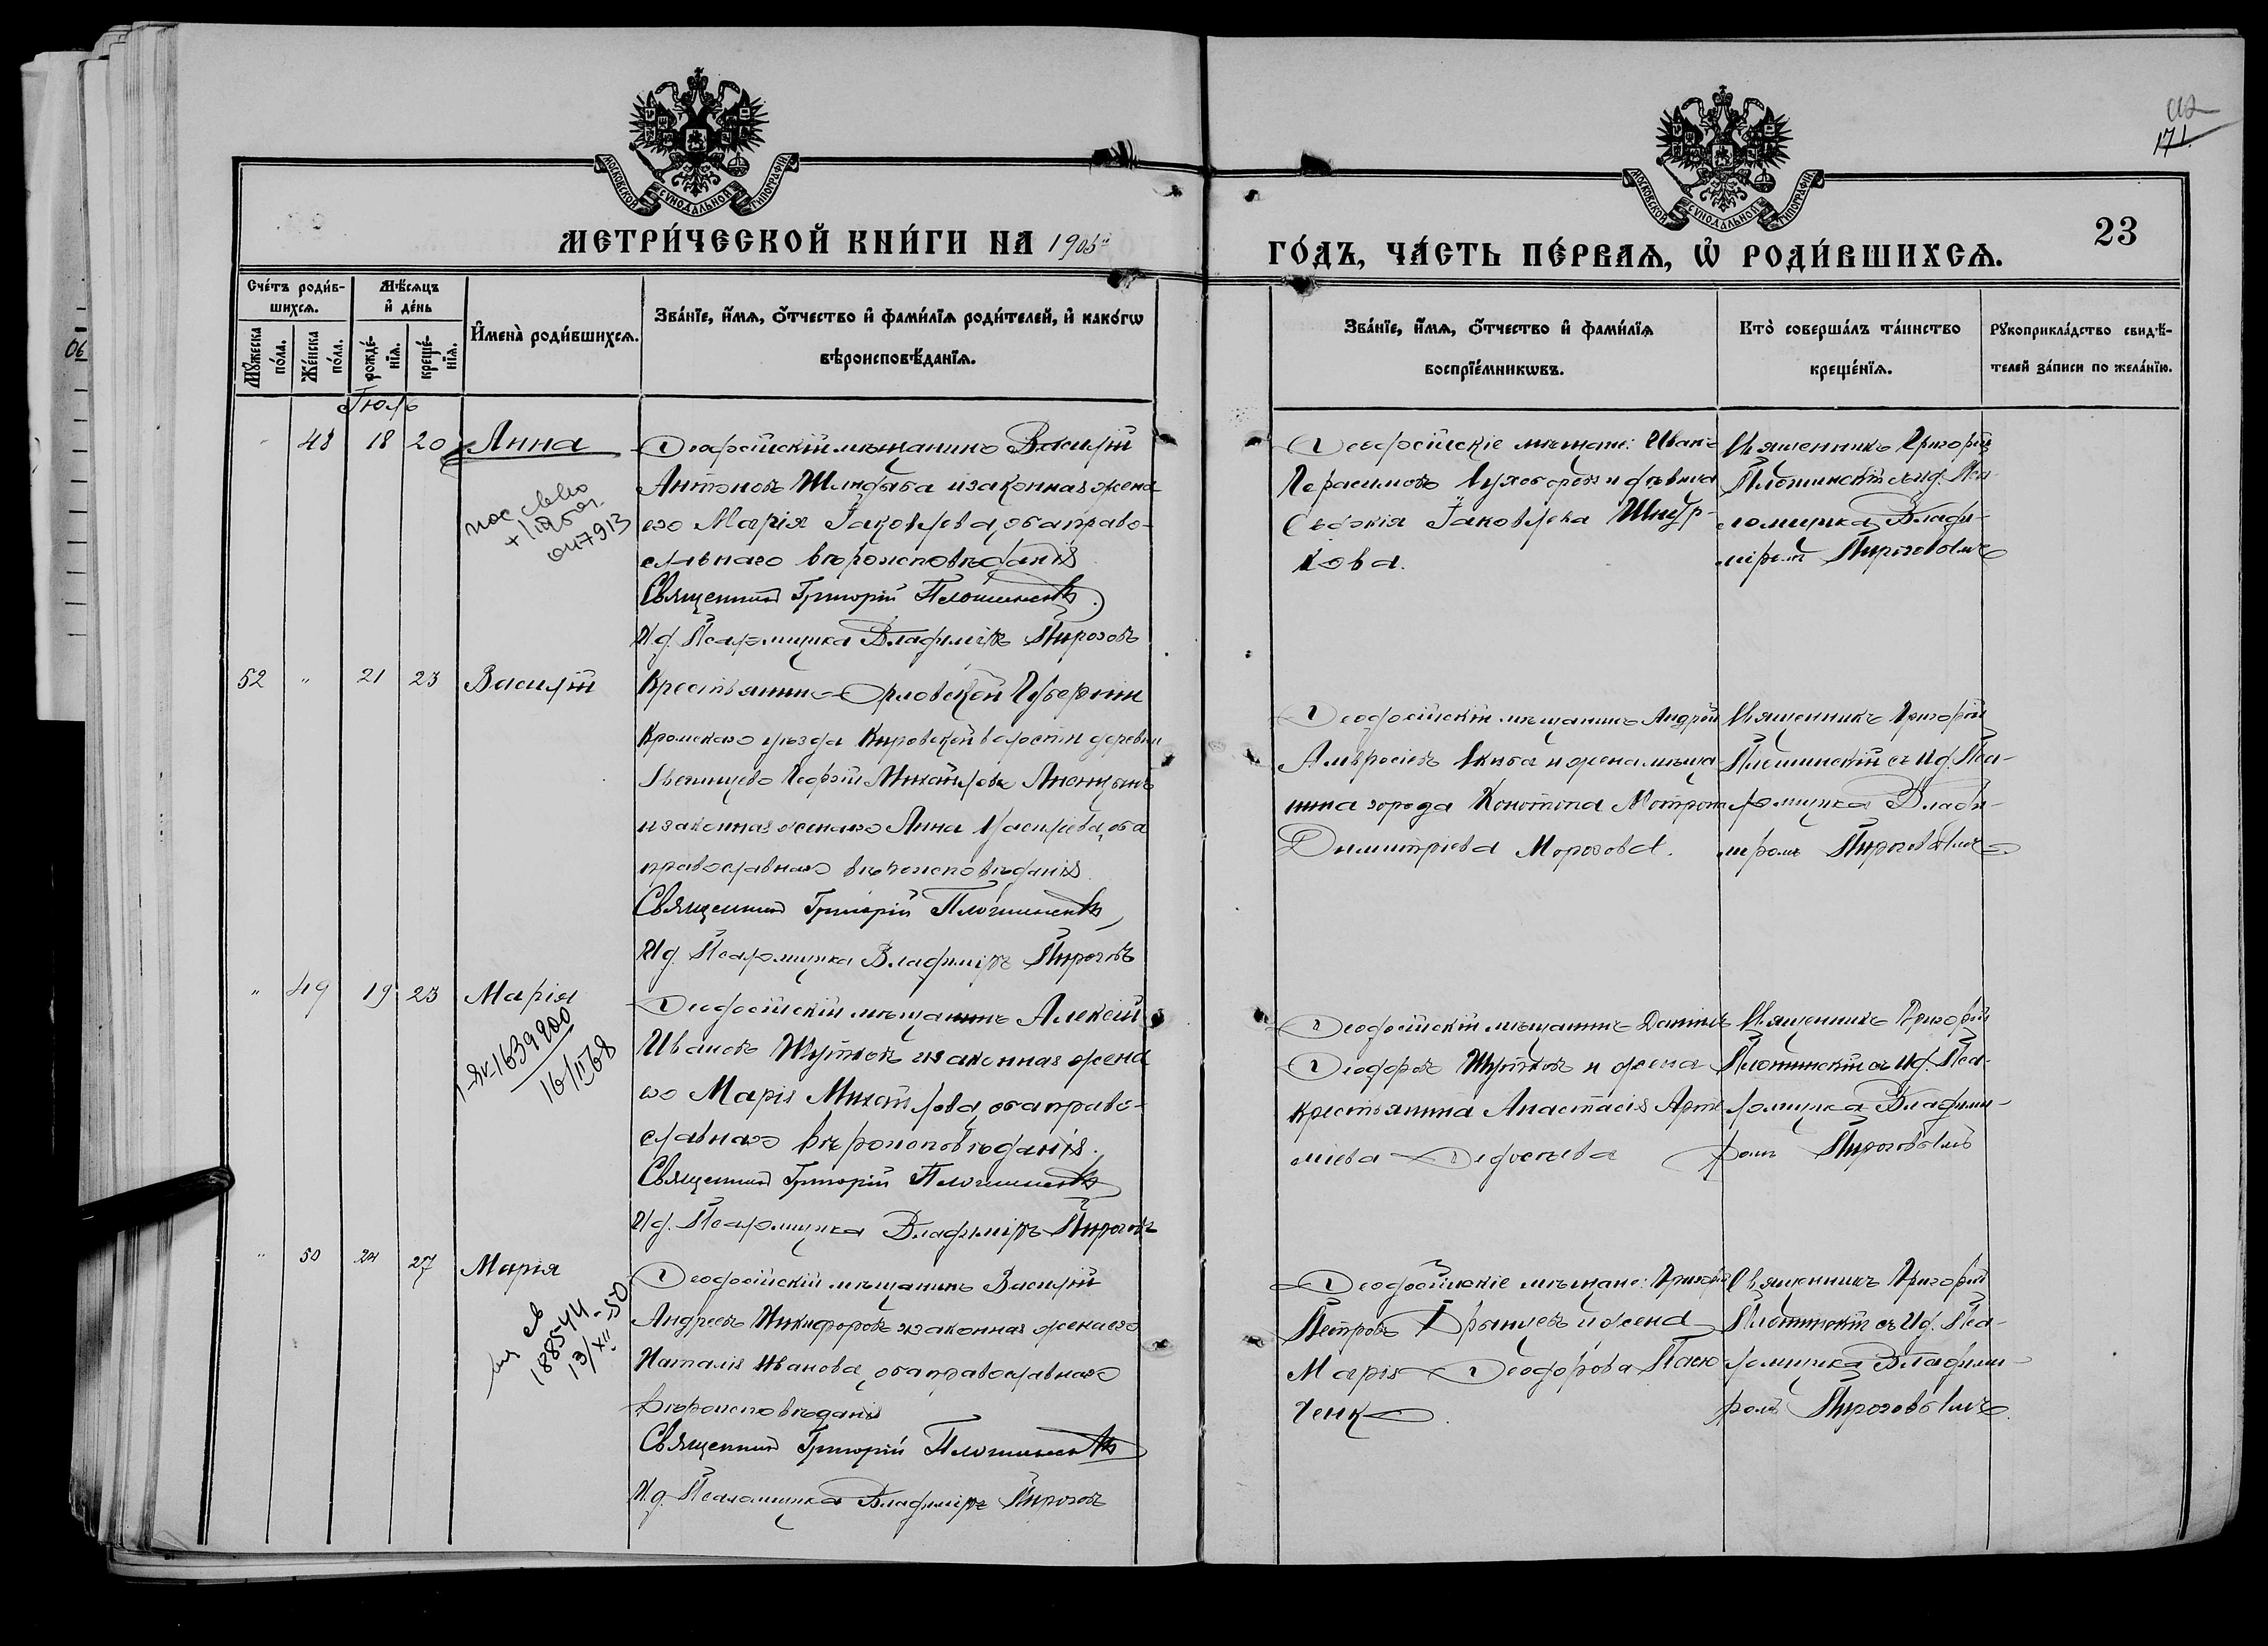 МЕТРИ́ЧЕСКОЙ КНИ́ГИ НА 1905
ГО́ДЪ, ЧА́СТЬ ПЕ́РВАЯ, Ѡ҆ РОДИ́ВШИХСЯ.
23
171.
МОСКОВСКОЙ СѴНОДАЛЬНОЙ ТИПОГРАФІИ
МОСКОВСКОЙ СѴНОДАЛЬНОЙ ТИПОГРАФІИ
06
Сче́тъ роди́в-
шихся.
Мѣ́сяцъ
и҆ де́нь
Мꙋ́жеска по́ла.
Же́нска по́ла.
рожде́-
нїя.
креще́-
нїя.
И҆мена̀ роди́вшихся.
Зва́нїе, и҆́мя, о҆́тчество и҆ фами́лїя роди́телей, и҆ како́гѡ
вѣроисповѣ́данїя.
Зва́нїе, и҆́мя, о҆́тчество и҆ фами́лїя
воспрїе́мникѡвъ.
Кто̀ соверша́лъ та́инство
креще́нїя.
Рꙋкоприкла́дство свидѣ́-
телей за́писи по жела́нїю.
Іюль
48 18 20 Анна
Ѳеодосійскій мѣщанинъ Василій
Антоновъ и законная жена
его Марія Іаковлева, оба право-
славнаго вѣроисповѣданія
Священникъ Григорій Плотинскій
И.д. Псаломщика Владиміръ Пироговъ
Ѳеодосійскіе мѣщане: Иванъ
Герасимовъ и дѣвица
Іаковлева Шнур-
кова.
Священникъ Григорій
Плотинскій съ и.д. Пса-
ломщика Влади-
міромъ Пироговымъ
52 " 21 23 Василій
Крестьянинъ Орловской Губерніи
Кромскаго уѣзда Кировской волости деревни
Георгій Михайловъ
и законная жена его Анна Васильева, оба
православнаго вѣроисповѣданія
Священникъ Григорій Плотинскій
И.д. Псаломщика Владиміръ Пироговъ
Ѳеодосійскій мѣщанинъ Андрей
Амвросіевъ и жена мѣща
нина города Конотопа
Димитріева Морозова.
Священникъ Григорій
Плотинскій съ и.д. Пса-
ломщика Влади-
міромъ Пироговымъ
" 49 19 23 Марія
1639200
16/II 68
Ѳеодосійскій мѣщанинъ Алексій
Ивановъ Шутовъ и законная жена
его Марія Михайлова, оба право-
славнаго вѣроисповѣданія.
Священникъ Григорій Плотинскій
И.д. Псаломщика Владиміръ Пироговъ
Ѳеодосійскій мѣщанинъ Даніилъ
Ѳеодоровъ Шутовъ и жена
крестьянина Анастасія Арте
міева Ѳедосѣева
Священникъ Григорій
Плотинскій съ и.д. Пса-
ломщика Владими-
ромъ Пироговымъ
" 50 24 27 Марія
188544
13/XII-50
Ѳеодосійскій мѣщанинъ Василій
Андреевъ Никифоровъ и законная жена его
Наталія Иванова, оба православнаго
вѣроисповѣданія
Священникъ Григорій Плотинскій
И.д. Псаломщика Владиміръ Пироговъ
Ѳеодосійскіе мѣщане: Григорій
Петровъ и жена
Марія Ѳеодорова
Священникъ Григорій
Плотинскій съ и.д. Пса-
ломщика Владими-
ромъ Пироговымъ.